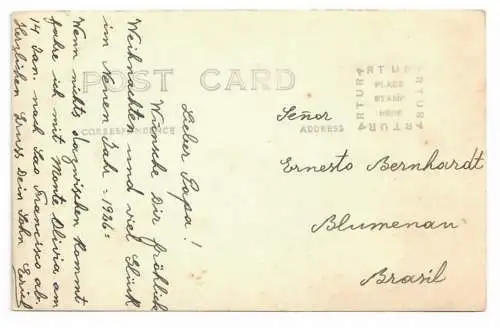 POST CARD
CORRESPONDENCE
ADDRESS
ARTURA
PLACE
STAMP
HERE
Lieber Papa!
Wünsche Dir fröhliche
Weihnachten und viel Glück
im Neuen Jahr - 1936-
Wenn nichts dazwischen kommt
fahre ich mit Monte Olivia am
14 Jan. nach Sao Francisco ab.
Herzlichen Gruss Dein Sohn
Señor
Ernesto Bernhardt
Blumenau
Brasil